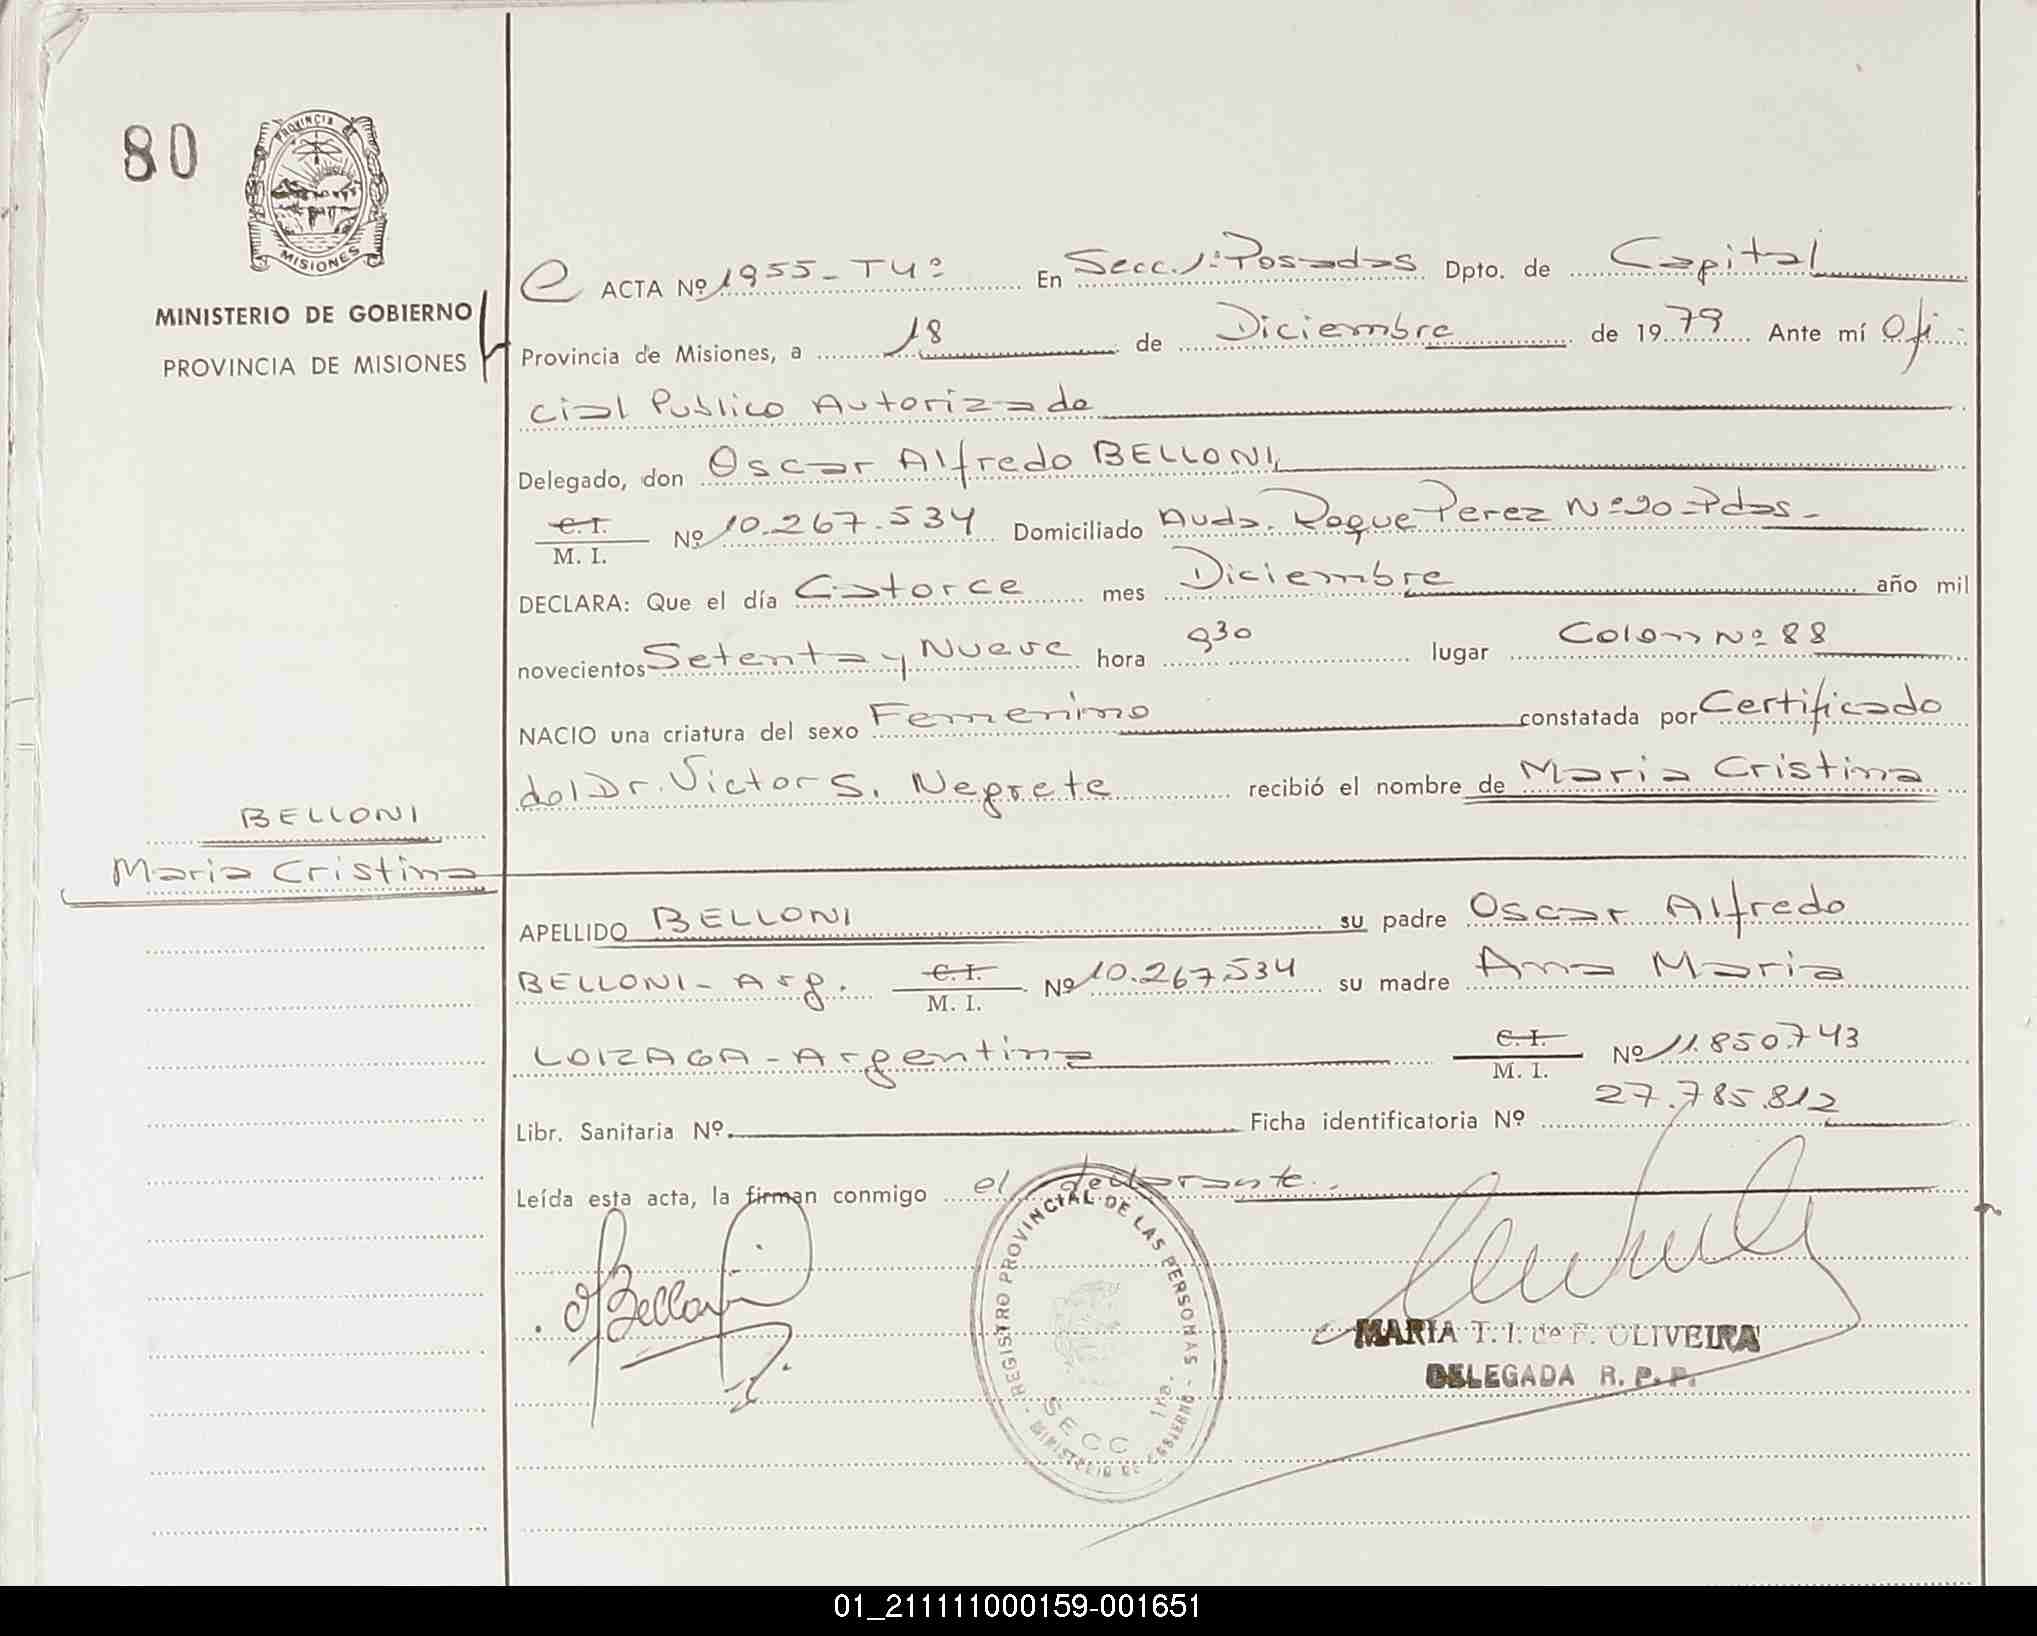 80
PROVINCIA DE
MISIONES
MINISTERIO DE GOBIERNO
PROVINCIA DE MISIONES
ACTA Nº 1955 - T4º En Secc. 1ª Posadas Dpto. de Capital
Provincia de Misiones, a 18 de Diciembre de 1979 Ante mí Ofi
cial Publico Autorizado
Delegado, don Oscar Alfredo BELLONI,
C.I. M. I. Nº 10.267.534 Domiciliado Avda. Roque Perez Nº 90 - Pdas -
DECLARA: Que el día Catorce mes Diciembre año mil
novecientos Setenta y Nueve hora 930 lugar Colon Nº 88
NACIO una criatura del sexo Femenino constatada por Certificado
del Dr. Victor S. Negrete recibió el nombre de Maria Cristina
BELLONI
Maria Cristina
APELLIDO BELLONI su padre Oscar Alfredo
BELLONI - Arg. C.I. M. I. Nº 10.267.534 su madre Ana Maria
LOIZAGA - Argentina C.I. M. I. Nº 11.850.743
Libr. Sanitaria Nº. Ficha identificatoria Nº 27.785.812
Leída esta acta, la firman conmigo el declarante.
Belloni
REGISTRO PROVINCIAL DE LAS PERSONAS - MINISTERIO DE GOBIERNO -
SECC 1ra.
MARIA T. I. de F. OLIVEIRA
DELEGADA R. P. P.
01_211111000159-001651